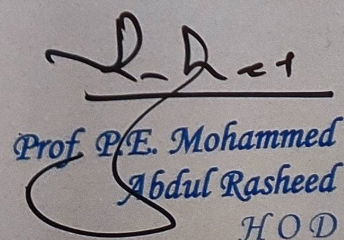 Prof P.E. Mohammed
Abdul Rasheed
H O D